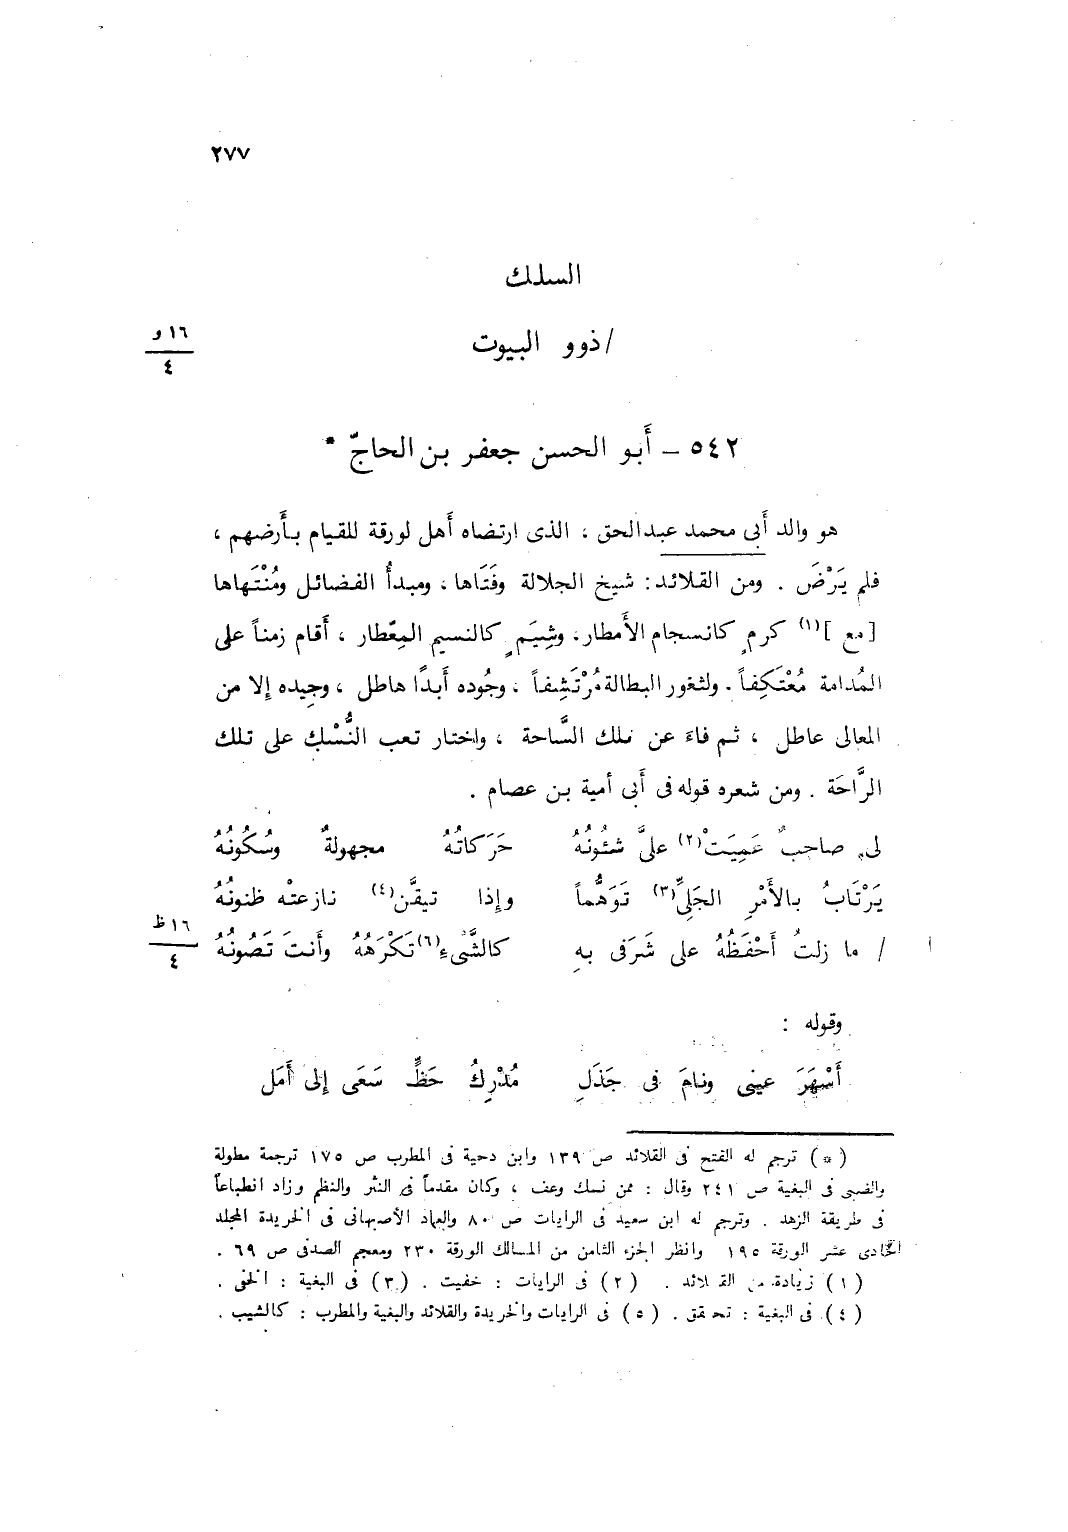 ٢٧٧
السلك
/ ذوو البيوت
١٦ و
٤
٥٤٢ – أَبو الحسن جعفر بن الحاجّ *
هو والد أَبى محمد عبدالحق ، الذى ارتضاه أَهل لورقة للقيام بأَرضهم ،
فلم يَرْضَ . ومن القلائد : شيخ الجلالة وفَتَاها ، ومبدأُ الفضائل ومُنْتَهاها
[ مع ](١) كرمٍ كانسجام الأَمطار ، وشِيَمٍ كالنسيم المِعْطار ، أَقام زمناً على
المُدامة مُعْتَكِفاً . ولثغور البطالة مُرْتَشِفاً ، وجُوده أَبدًا هاطل ، وجِيده إلا من
المعالى عاطل ، ثم فاءَ عن تلك السَّاحة ، واختار تعب النُّسْكِ على تلك
الرَّاحَة . ومن شعره قوله فى أَبى أمية بن عصام .
لى صاحبٌ عَمِيَتْ(٢) علىَّ شئُونُهُ حَرَكاتُهُ مجهولةٌ وسُكُونُهُ
يَرْتَابُ بالأَمْرِ الجَلِىِّ(٣) تَوَهُّماً وإذا تيقَّن(٤) نازعتْه ظنونُهُ
١٦ ظ
٤
/ ما زلتُ أَحْفَظُهُ على شَرَفى بهِ كالشَّىءِ(٦) تَكْرَهُهُ وأَنتَ تَصُونُهُ
وقوله :
أَسْهَرَ عينى ونامَ فى جَذَلِ مُدْرِكُ حَظٍّ سَعَى إلى أَمَل
( * ) ترجم له الفتح فى القلائد ص ١٣٩ وابن دحية فى المطرب ص ١٧٥ ترجمة مطولة
والضبى فى البغية ص ٢٤١ وقال : ممن نسك وعف ، وكان مقدماً فى النثر والنظم وزاد انطباعاً
فى طريقة الزهد . وترجم له ابن سعيد فى الرايات ص ٨٠ والعماد الأصبهانى فى الخريدة المجلد
الحادى عشر الورقة ١٩٥ وانظر الجزء الثامن من المسالك الورقة ٢٣٠ ومعجم الصدفى ص ٦٩ .
( ١ ) زيادة من القلائد . ( ٢ ) فى الرايات : خفيت . ( ٣ ) فى البغية : الخفى .
( ٤ ) فى البغية : تحقق . ( ٥ ) فى الرايات والخريدة والقلائد والبغية والمطرب : كالشيب .